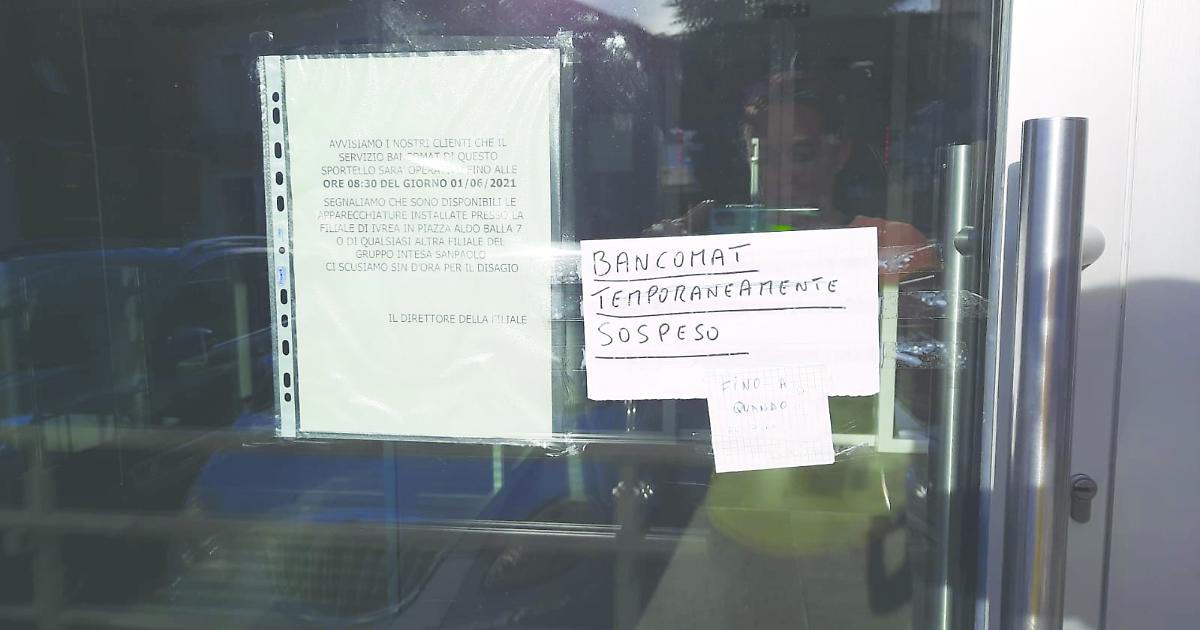 AVVISIAMO I NOSTRI CLIENTI CHE IL
SERVIZIO BANCOMAT DI QUESTO
SPORTELLO SARA' OPERATIVO FINO ALLE
ORE 08:30 DEL GIORNO 01/06/2021
SEGNALIAMO CHE SONO DISPONIBILI LE
APPARECCHIATURE INSTALLATE PRESSO LA
FILIALE DI IVREA IN PIAZZA ALDO BALLA 7
O DI QUALSIASI ALTRA FILIALE DEL
GRUPPO INTESA SANPAOLO
CI SCUSIAMO SIN D'ORA PER IL DISAGIO
IL DIRETTORE DELLA FILIALE
BANCOMAT
TEMPORANEAMENTE
SOSPESO
FINO A
QUANDO